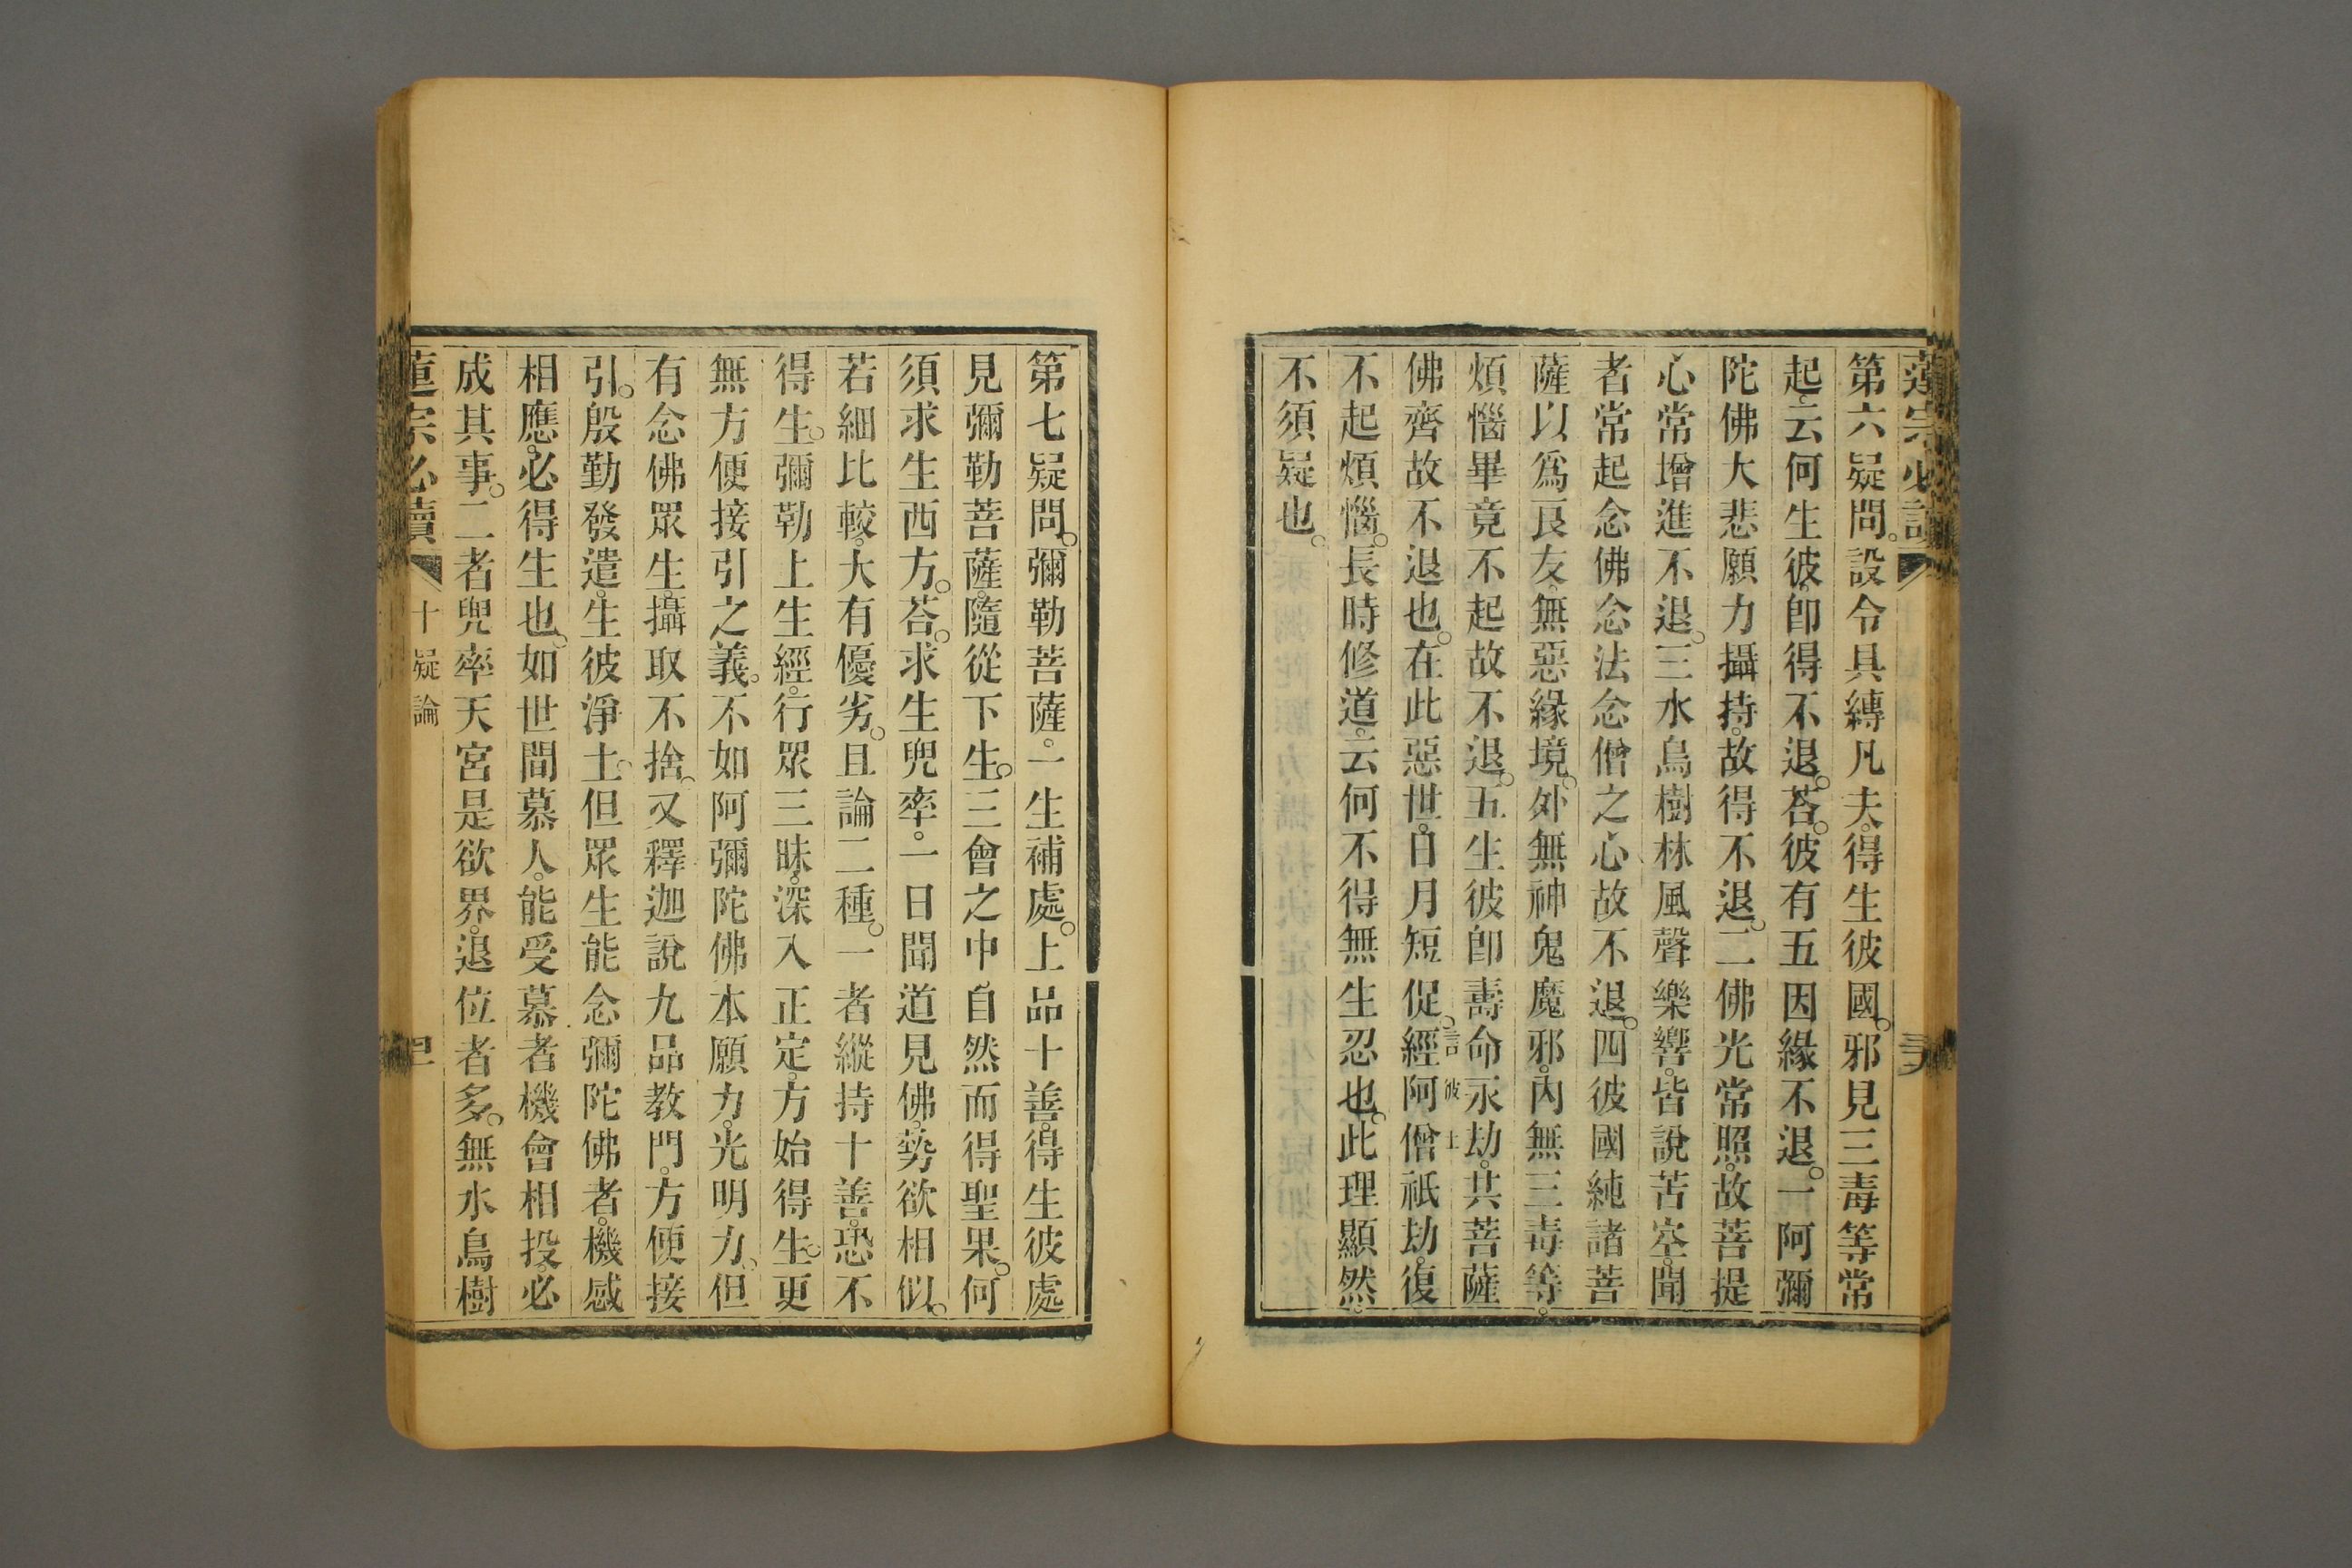 蓮宗必讀
第六疑問。設令具縛凡夫。得生彼國。邪見三毒等常
起。云何生彼。卽得不退。荅。彼有五因緣不退。一阿彌
陀佛大悲願力攝持。故得不退。二佛光常照。故菩提
心常增進不退。三水鳥樹林風聲樂響。皆說苦空。聞
者常起念佛念法念僧之心故不退。四彼國純諸菩
薩以爲良友。無惡緣境。外無神鬼魔邪。內無三毒等。
煩惱畢竟不起故不退。五生彼卽壽命永劫。共菩薩
佛齊故不退也。在此惡世。日月短促。經阿僧祇劫。復
言彼土
不起煩惱。長時修道。云何不得無生忍也。此理顯然。
不須疑也。
第七疑問。彌勒菩薩。一生補處。上品十善。得生彼處
見彌勒菩薩。隨從下生。三會之中。自然而得聖果。何
須求生西方。荅。求生兜率。一日聞道見佛。勢欲相似。
若細比較。大有優劣。且論二種。一者縱持十善。恐不
得生。彌勒上生經。行眾三昧。深入正定。方始得生。更
無方便接引之義。不如阿彌陀佛本願力。光明力。但
有念佛眾生。攝取不捨。又釋迦說九品教門。方便接
引。殷勤發遣。生彼淨土。但眾生能念彌陀佛者。機感
相應。必得生也。如世間慕人。能受慕者機會相投。必
成其事。二者兜率天宮是欲界。退位者多。無水鳥樹
蓮宗必讀 十疑論